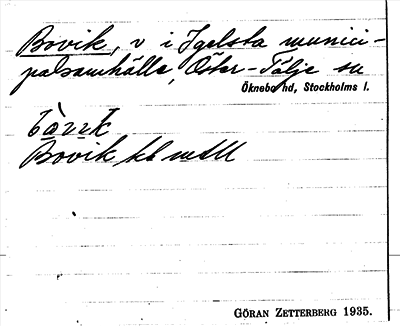 Bovik, v i Igelsta munici-
palsamhälle, Öster-Tälje sn
Öknebo hd, Stockholms l.
Bovik kb mtll
GÖRAN ZETTERBERG 1935.